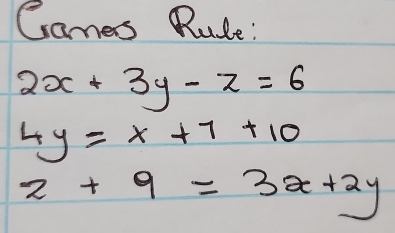 Cramers Rule:
2x + 3y - z = 6
4y = x + 7 + 10
z + 9 = 3x + 2y